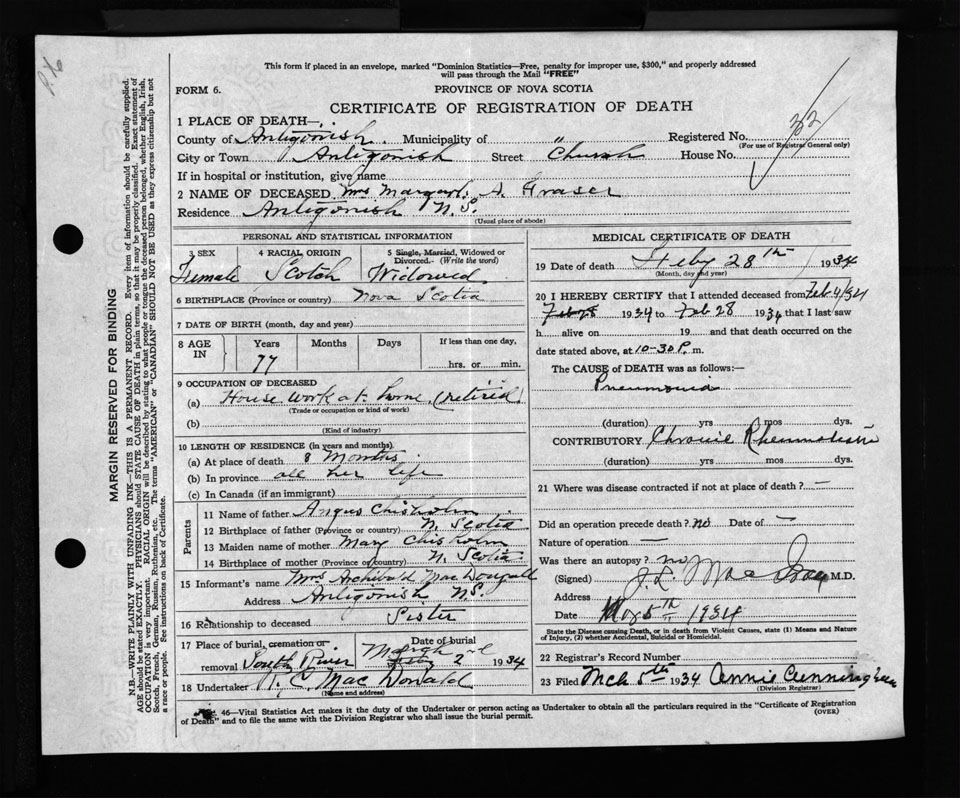 This form if placed in an envelope, marked "Dominion Statistics—Free, penalty for improper use, $300," and properly addressed
will pass through the Mail "FREE"
FORM 6.
PROVINCE OF NOVA SCOTIA
CERTIFICATE OF REGISTRATION OF DEATH
1 PLACE OF DEATH—
County of Antigonish Municipality of " Registered No. 32
(For use of Registrar General only)
City or Town Antigonish Street Church House No.
If in hospital or institution, give name
2 NAME OF DECEASED Mrs Margaret A. Fraser
Residence Antigonish N.S.
(Usual place of abode)
PERSONAL AND STATISTICAL INFORMATION
3 SEX 4 RACIAL ORIGIN 5 Single, Married, Widowed or
Divorced. (Write the word)
Female Scotch Widowed
6 BIRTHPLACE (Province or country) Nova Scotia
7 DATE OF BIRTH (month, day and year)
8 AGE IN Years Months Days If less than one day,
77 hrs. or min.
9 OCCUPATION OF DECEASED
(a) House work at home (retired)
(Trade or occupation or kind of work)
(b)
(Kind of industry)
10 LENGTH OF RESIDENCE (in years and months)
(a) At place of death 8 Months
(b) In province all her life
(c) In Canada (if an immigrant)
Parents
11 Name of father Angus Chisholm
12 Birthplace of father (Province or country) N. Scotia
13 Maiden name of mother Mary Chisholm
14 Birthplace of mother (Province or country) N. Scotia
15 Informant's name Mrs Archibald MacDougall
Address Antigonish N.S.
16 Relationship to deceased Sister
17 Place of burial, cremation or Date of burial
removal South River March 2nd 1934
18 Undertaker MacDonald
(Name and address)
MEDICAL CERTIFICATE OF DEATH
19 Date of death Feby 28th 1934
(Month, day and year)
20 I HEREBY CERTIFY that I attended deceased from Feb 4/34
1934 to Feb 28 1934 that I last saw
h alive on 19 and that death occurred on the
date stated above, at 10-30 P. m.
The CAUSE of DEATH was as follows:
Pneumonia
(duration) yrs mos dys.
CONTRIBUTORY Chronic Rheumatism
(duration) yrs mos dys.
21 Where was disease contracted if not at place of death? —
Did an operation precede death? no Date of —
Nature of operation —
Was there an autopsy? no
(Signed) M.D.
Address
Date 5th 1934
State the Disease causing Death, or in death from Violent Causes, state (1) Means and
Nature of Injury, (2) whether Accidental, Suicidal or Homicidal.
22 Registrar's Record Number
23 Filed Mch 5th 1934 Annie Cunningham
(Division Registrar)
46—Vital Statistics Act makes it the duty of the Undertaker or person acting as Undertaker to obtain all the particulars required in the "Certificate of Registration
of Death" and to file the same with the Division Registrar who shall issue the burial permit.
(OVER)
MARGIN RESERVED FOR BINDING
N.B.—WRITE PLAINLY WITH UNFADING INK—THIS IS A PERMANENT RECORD. Every item of information should be carefully supplied.
AGE should be stated EXACTLY. PHYSICIANS should STATE CAUSE OF DEATH in plain terms, so that it may be properly classified. Exact statement of
OCCUPATION is very important. RACIAL ORIGIN will be described by stating to what people or tongue the deceased person belonged, whether English, Irish,
Scotch, French, German, Russian, Ruthenian, etc. The terms "AMERICAN" or "CANADIAN" SHOULD NOT BE USED as they express citizenship but not
a race or people. See instructions on back of Certificate.